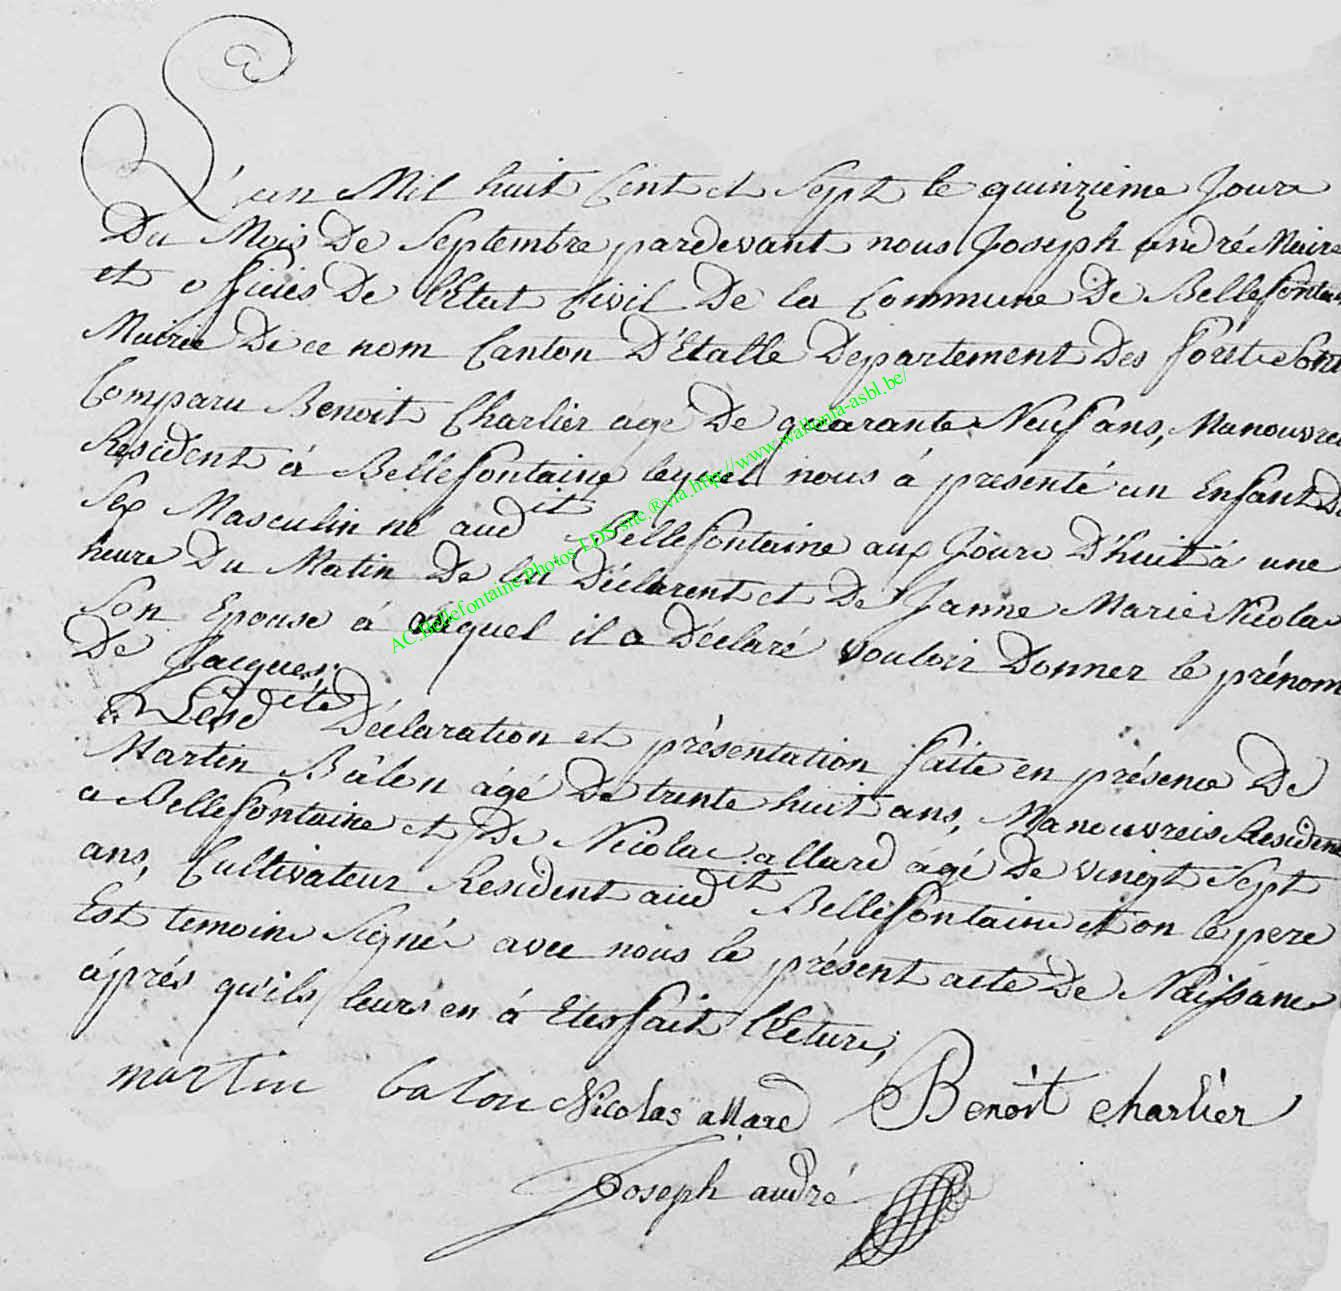 L'an Mil huit Cent et Sept le quinzieme Jour
Du Mois De Septembre pardevant nous Joseph andré Maire
et officiés De l'Etat Civil De la Commune De Bellefontai
Mairie De ce nom Canton D'Etalle Departement Des forêt Sont
Comparu Benoit Charlier agé De quarante Neuf ans, Manouvre
Resident à Bellefontaine lequel nous à presenté un Enfant De
Sex Masculin né audit Bellefontaine aux Jour D'huit à une
heure Du Matin De lui Déclarent et De Janne Marie Nicolas
Son Epouse à auquel il a Déclaré vouloir Donner le prénom
De Jacques;
Lesdite Déclaration et présentation faite en présence De
Martin Bâlon âgé De trente huit ans, Manouvreis Resident
a Bellefontaine et De Nicolas allard âgé De vingt Sept
ans, Cultivateur Resident audit Bellefontaine et on le pere
Est temoins Signé avec nous le présent acte De Naissance
âprés qu'ils leurs en á Eter fait l'Ecture;
martin balon Nicolas allard Benoit charlier
Joseph andré
AC.Bellefontaine.Photos LDS site ® via http://www.wallonia-asbl.be/